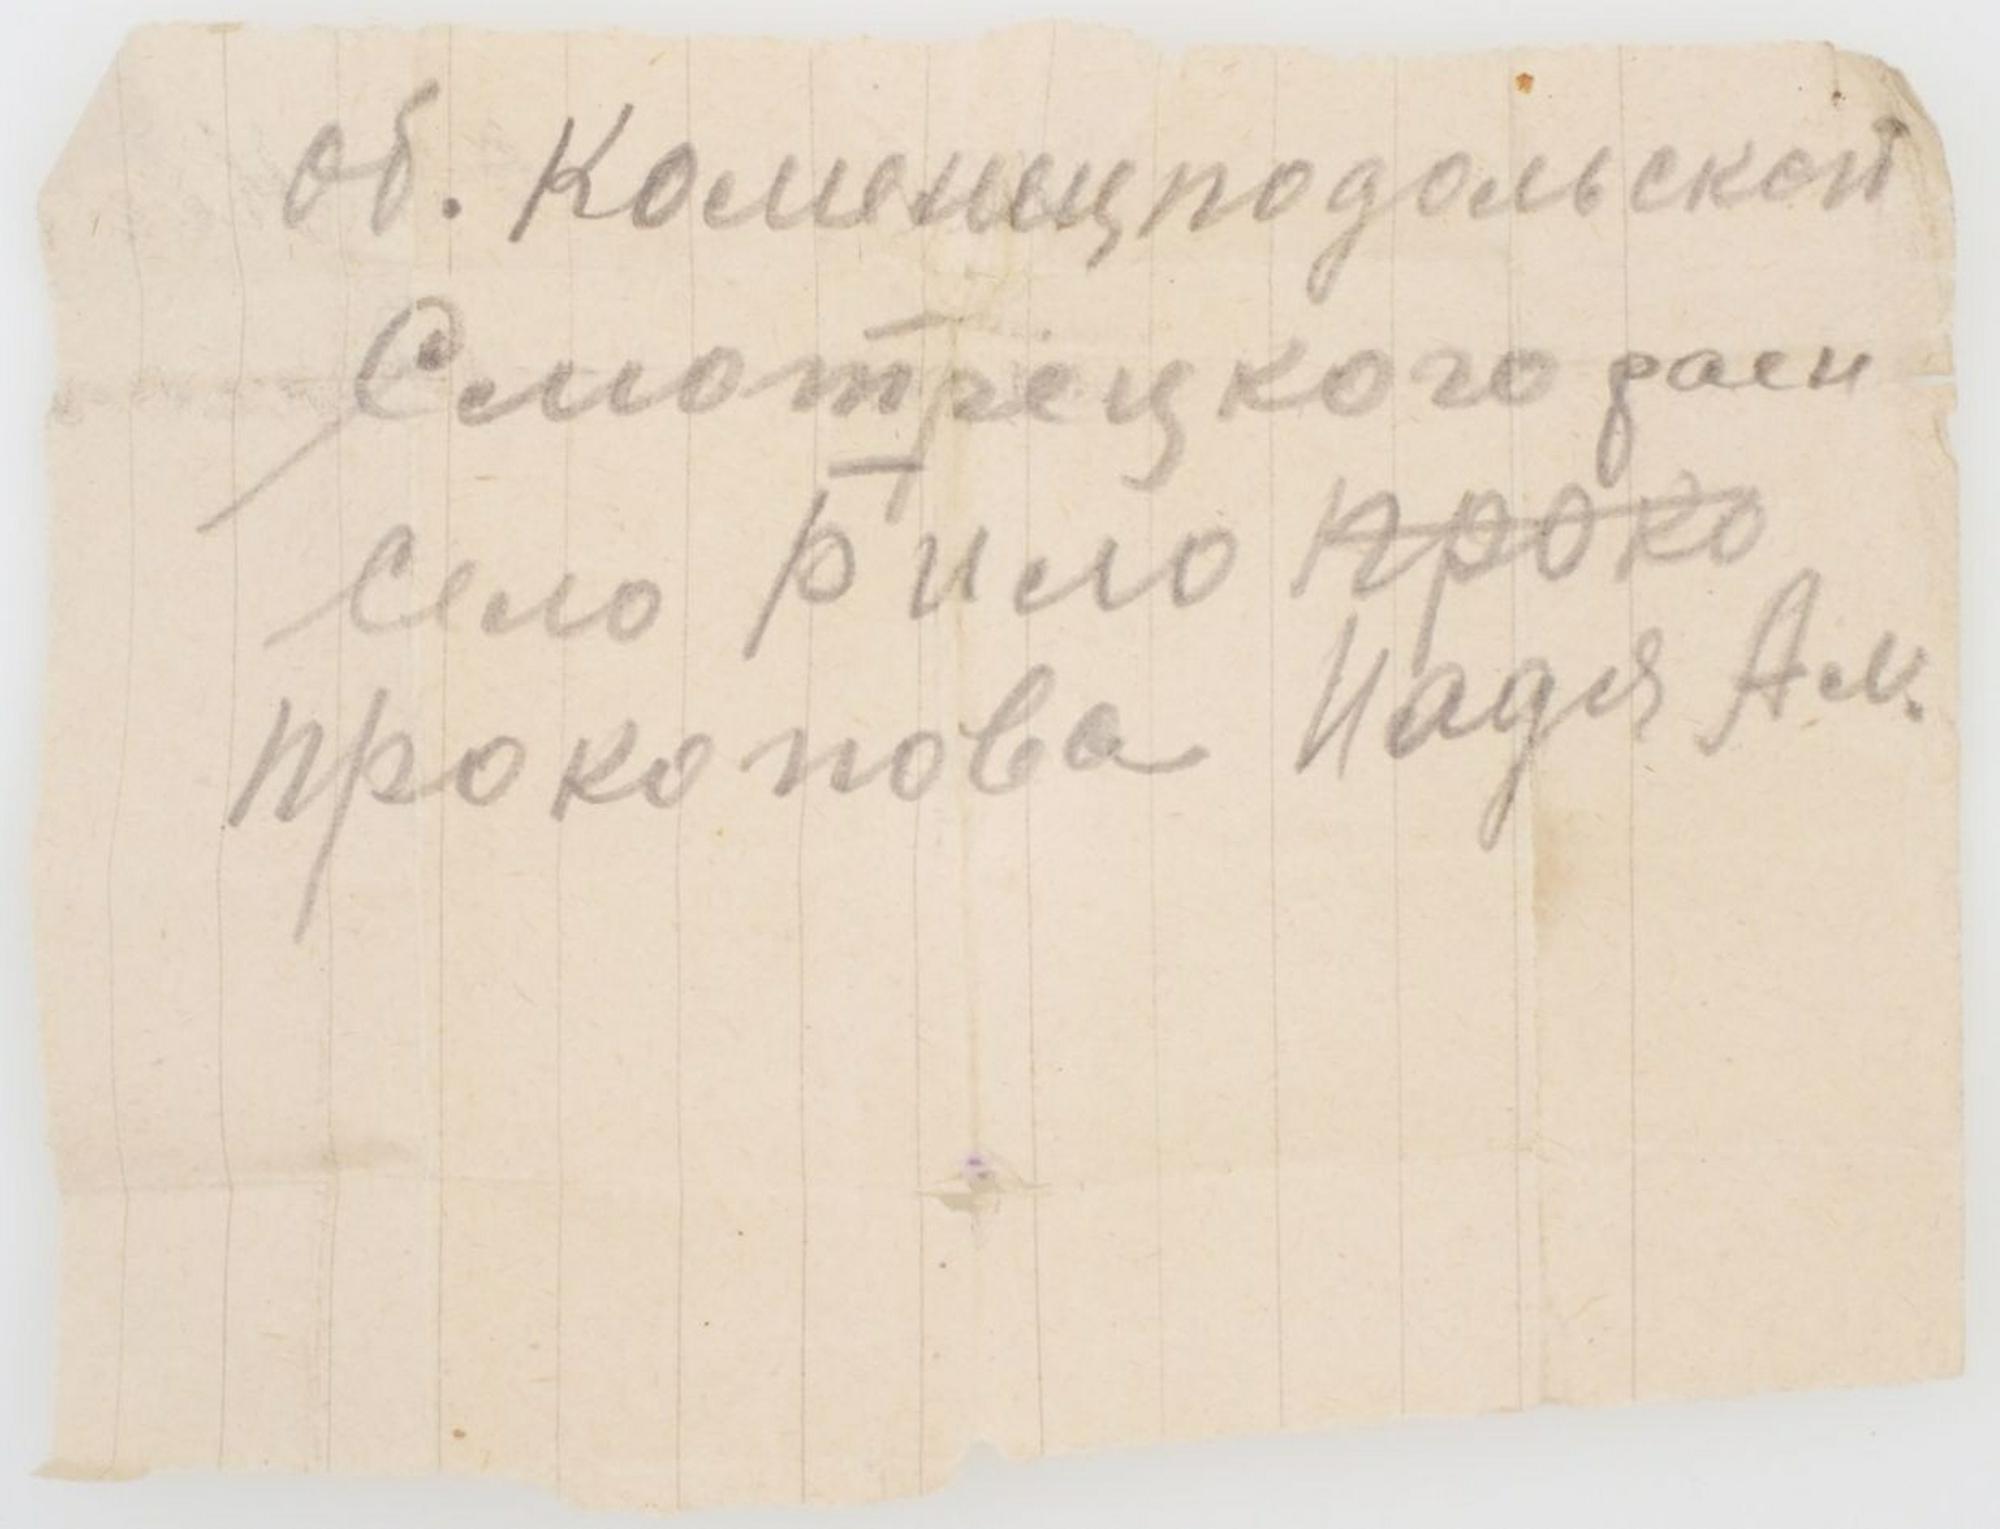 об. Коменецподольской
Смотрецкого раен
село Рило проко
Прокопова Надя Ам.